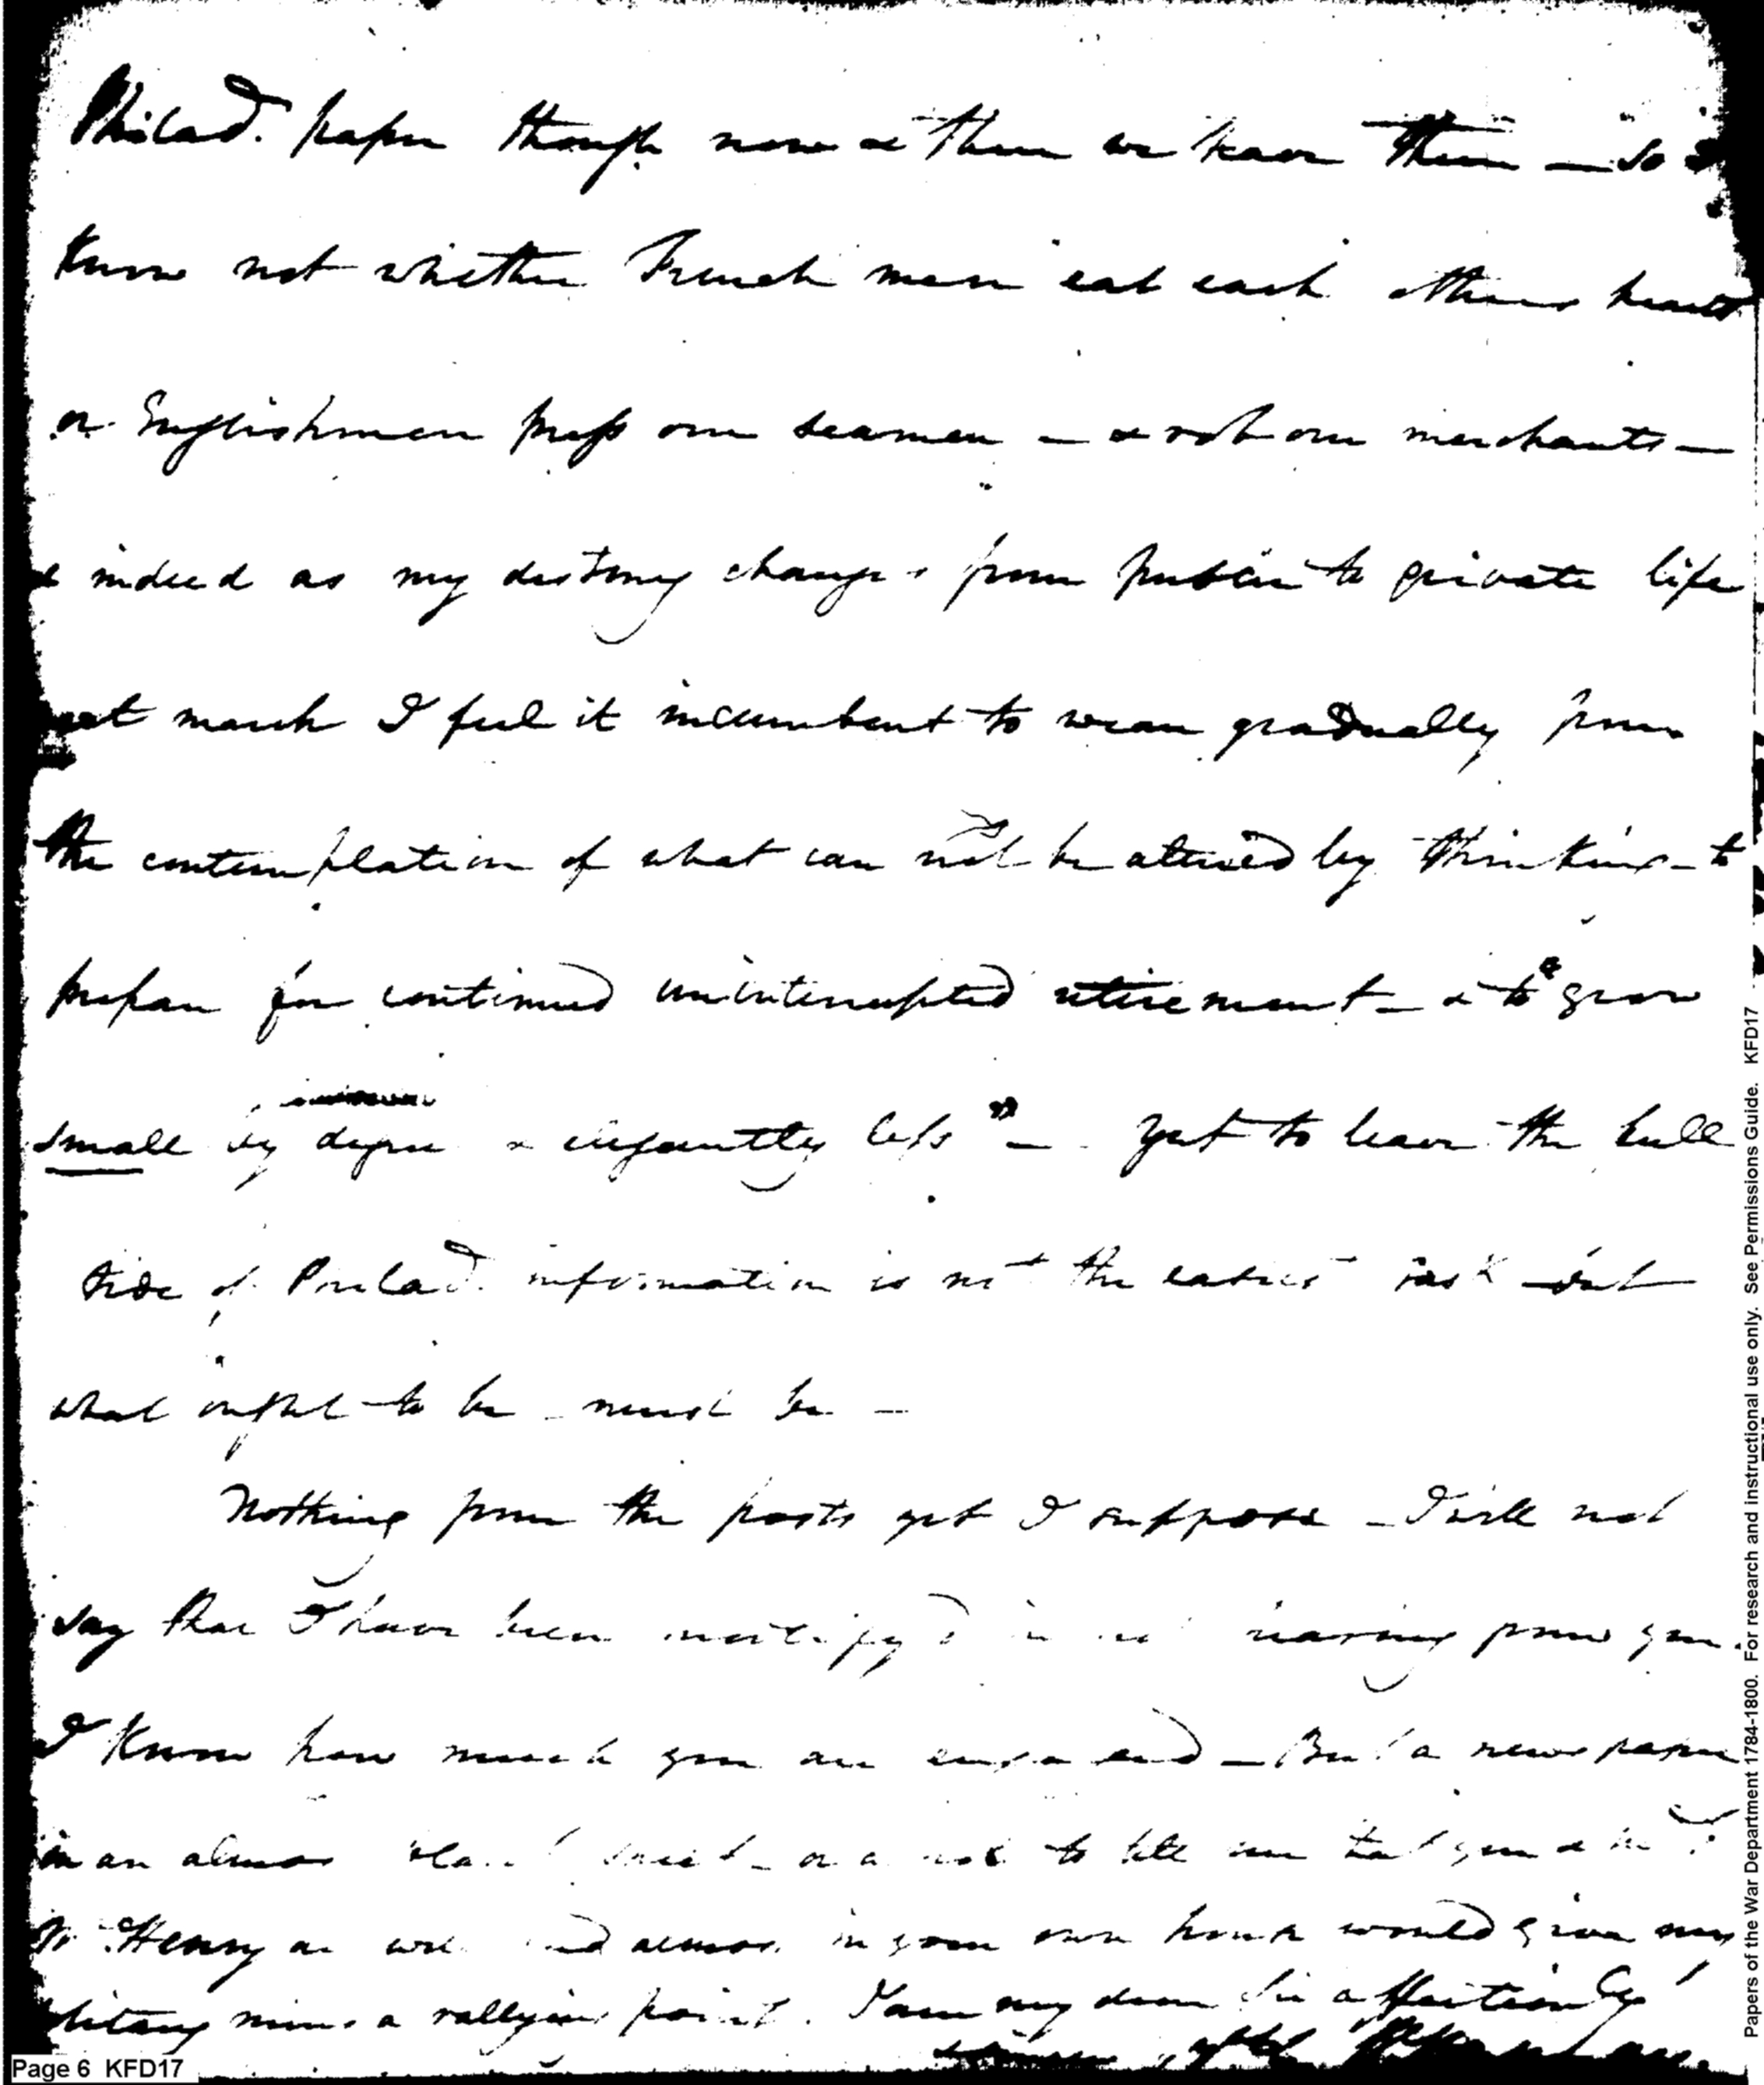 Philad. paper though now & then we have them — so I
know not whether French men eat each others hearts
or Englishmen press our seamen — & rob our merchants —
& indeed as my destiny changes from public to private life
next march I feel it incumbent to wean gradually from
the contemplation of what can not be altered by thinking — to
prepare for continued uninterrupted retirement — & to "grow
small by degree & elegantly less" — yet to leave the full
tide of Philad. information is not the easiest task — but
what ought to be must be —
Nothing from the posts yet I suppose — I will not
say that I have been mortify'd in not hearing from you.
I know how much you are engaged — But a newspaper
in an almost blank sheet — or a to tell me that you &
Henry are well and almost in your own house would give my
mind a rallying point. I am my dear Sir affectionately
Page 6 KFD17
Papers of the War Department 1784-1800. For research and instructional use only. See Permissions Guide. KFD17